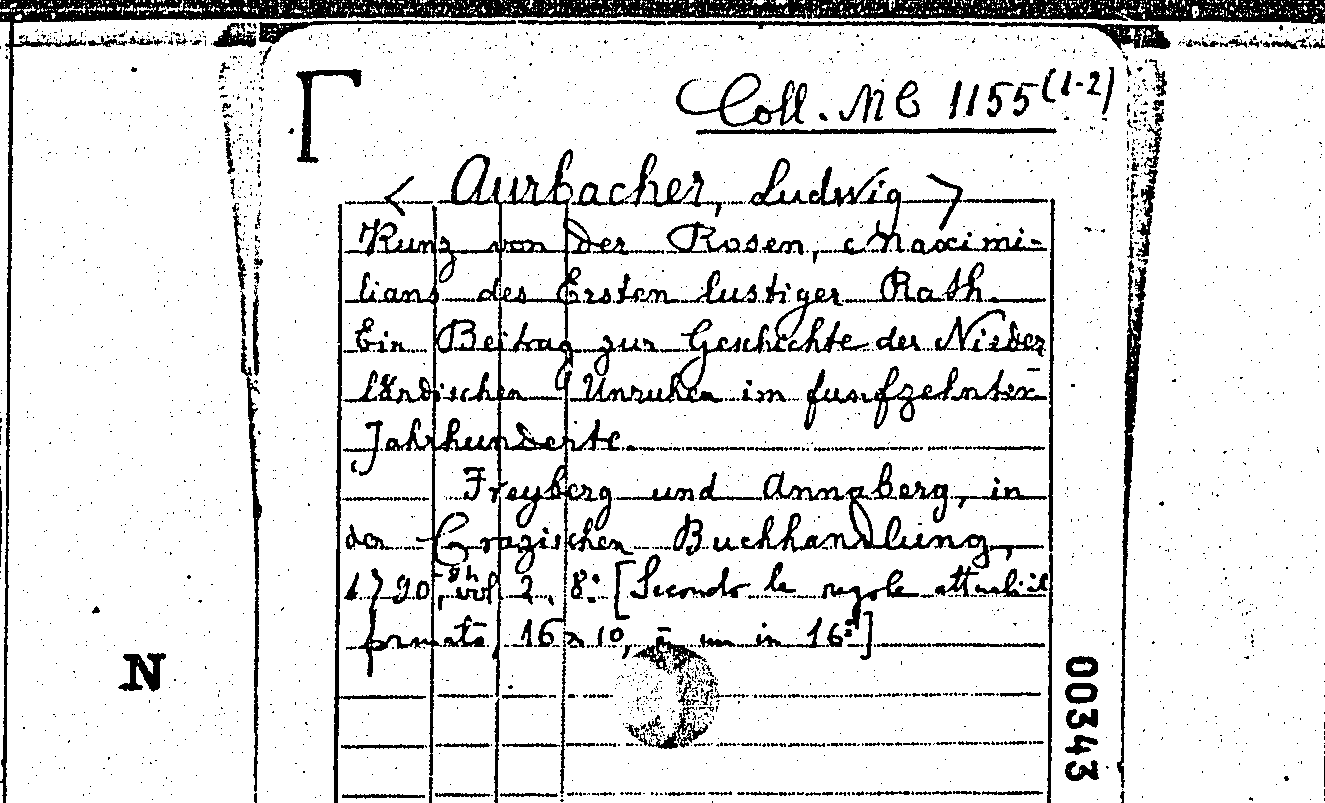 Coll. MC 1155 (1-2)
< Aurbacher, Ludwig >
Kunz von der Rosen, Maximi-
lians des Ersten lustiger Rath.
Ein Beitrag zur Geschichte der Nieder
ländischen Unruhen im funfzehnten
Jahrhunderte.
Freyberg und Annaberg, in
der Crazischen Buchhandlung,
1790, vol 2, 8º [Secondo le regole attuali il
formato, 16x10, è un in 16º]
N
00343